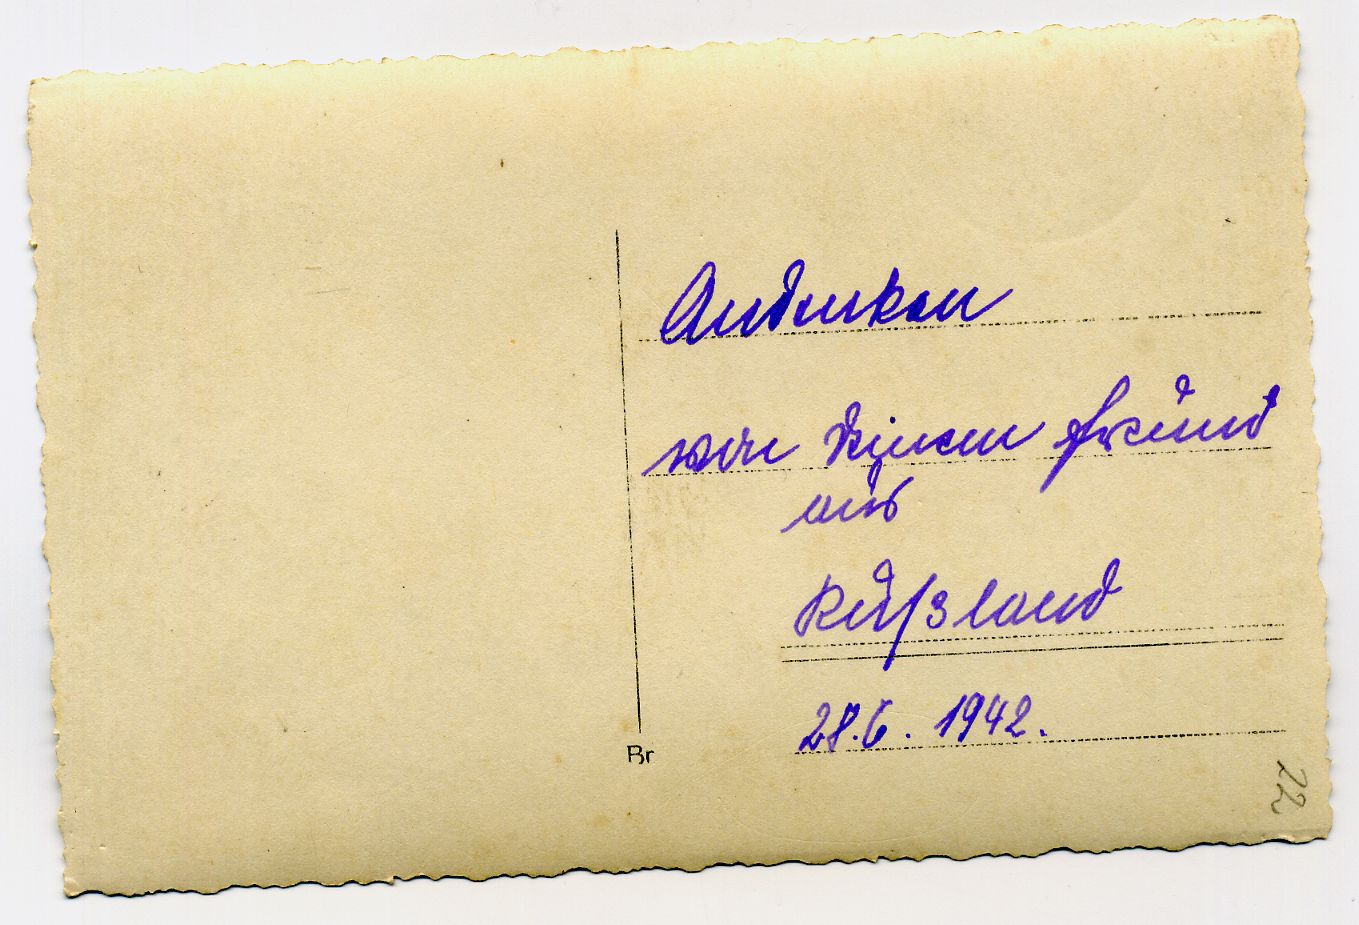 Andenken
von deinen Freund
aus
Rußland
28.6. 1942.
Br
22